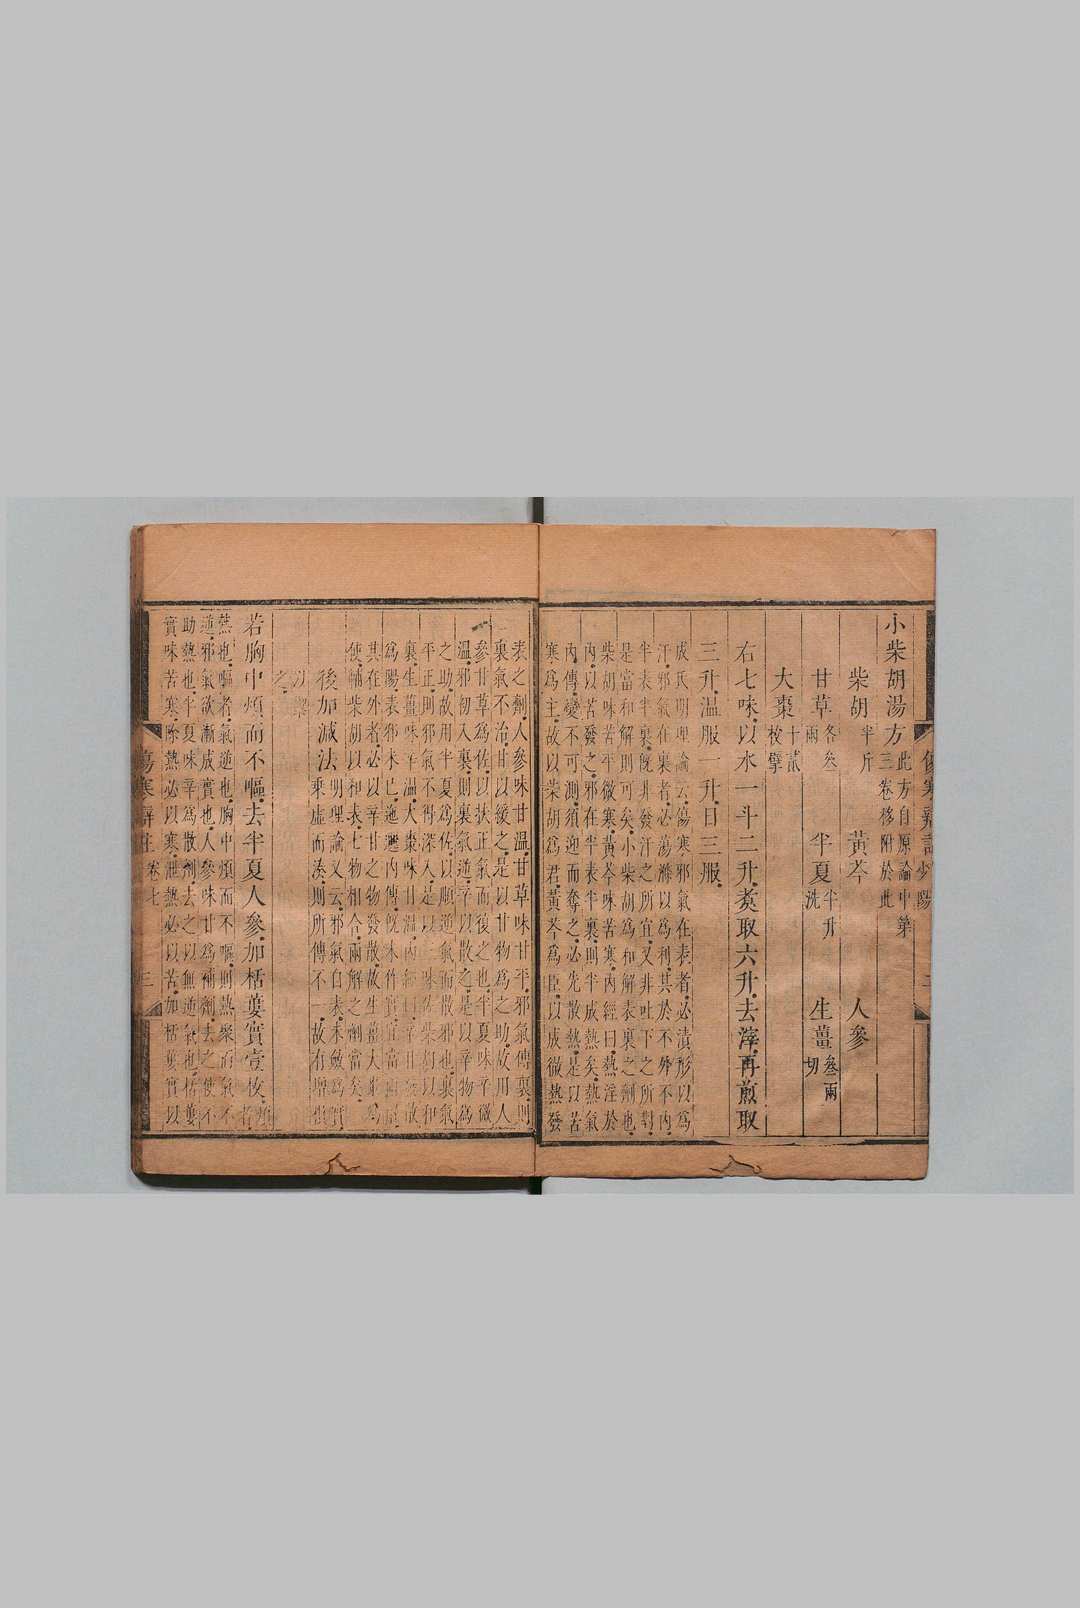 小柴胡湯方
此方自原論中第
三卷移附於此
柴胡半斤 黃芩 人參
甘草各叁兩 半夏半升洗 生薑叁兩切
大棗十貳枚擘
右七味以水一斗二升煑取六升去滓再煎取
三升温服一升日三服
成氏明理論云傷寒邪氣在表者必漬形以爲
汗邪氣在裏者必蕩滌以爲利其於不外不内
半表半裏旣非發汗之所宜又非吐下之所對
是當和解則可矣小柴胡爲和解表裏之劑也
柴胡味苦平微寒黃芩味苦寒内經曰熱淫於
内以苦發之邪在半表半裏則半成熱矣熱氣
内傳變不可測須迎而奪之必先散熱是以苦
寒爲主故以柴胡爲君黃芩爲臣以成徹熱發
表之劑人參味甘温甘草味甘平邪氣傳裏則
裏氣不治甘以緩之是以甘物爲之助故用人
參甘草爲佐以扶正氣而復之也半夏味辛微
温邪初入裏則裏氣逆辛以散之是以辛物爲
之助故用半夏爲佐以順逆氣而散邪也裏氣
平正則邪氣不得深入是以三味佐柴胡以和
裏生薑味辛温大棗味甘温内經曰辛甘發散
爲陽表邪未已迤邐内傳旣未作實宜當兩解
其在外者必以辛甘之物發散故生薑大棗爲
使輔柴胡以和表七物相合兩解之劑當矣
後加減法
明理論又云邪氣自表未斂爲實
乘虛而湊則所傳不一故有增損
以禦
之
若胸中煩而不嘔去半夏人參加栝蔞實壹枚煩者
熱也嘔者氣逆也胸中煩而不嘔則熱聚而氣不
逆邪氣欲漸成實也人參味甘爲補劑去之使不
助熱也半夏味辛爲散劑去之以無逆氣也栝蔞
實味苦寒除熱必以寒泄熱必以苦加栝蔞實以
傷寒辯註 卷七 三